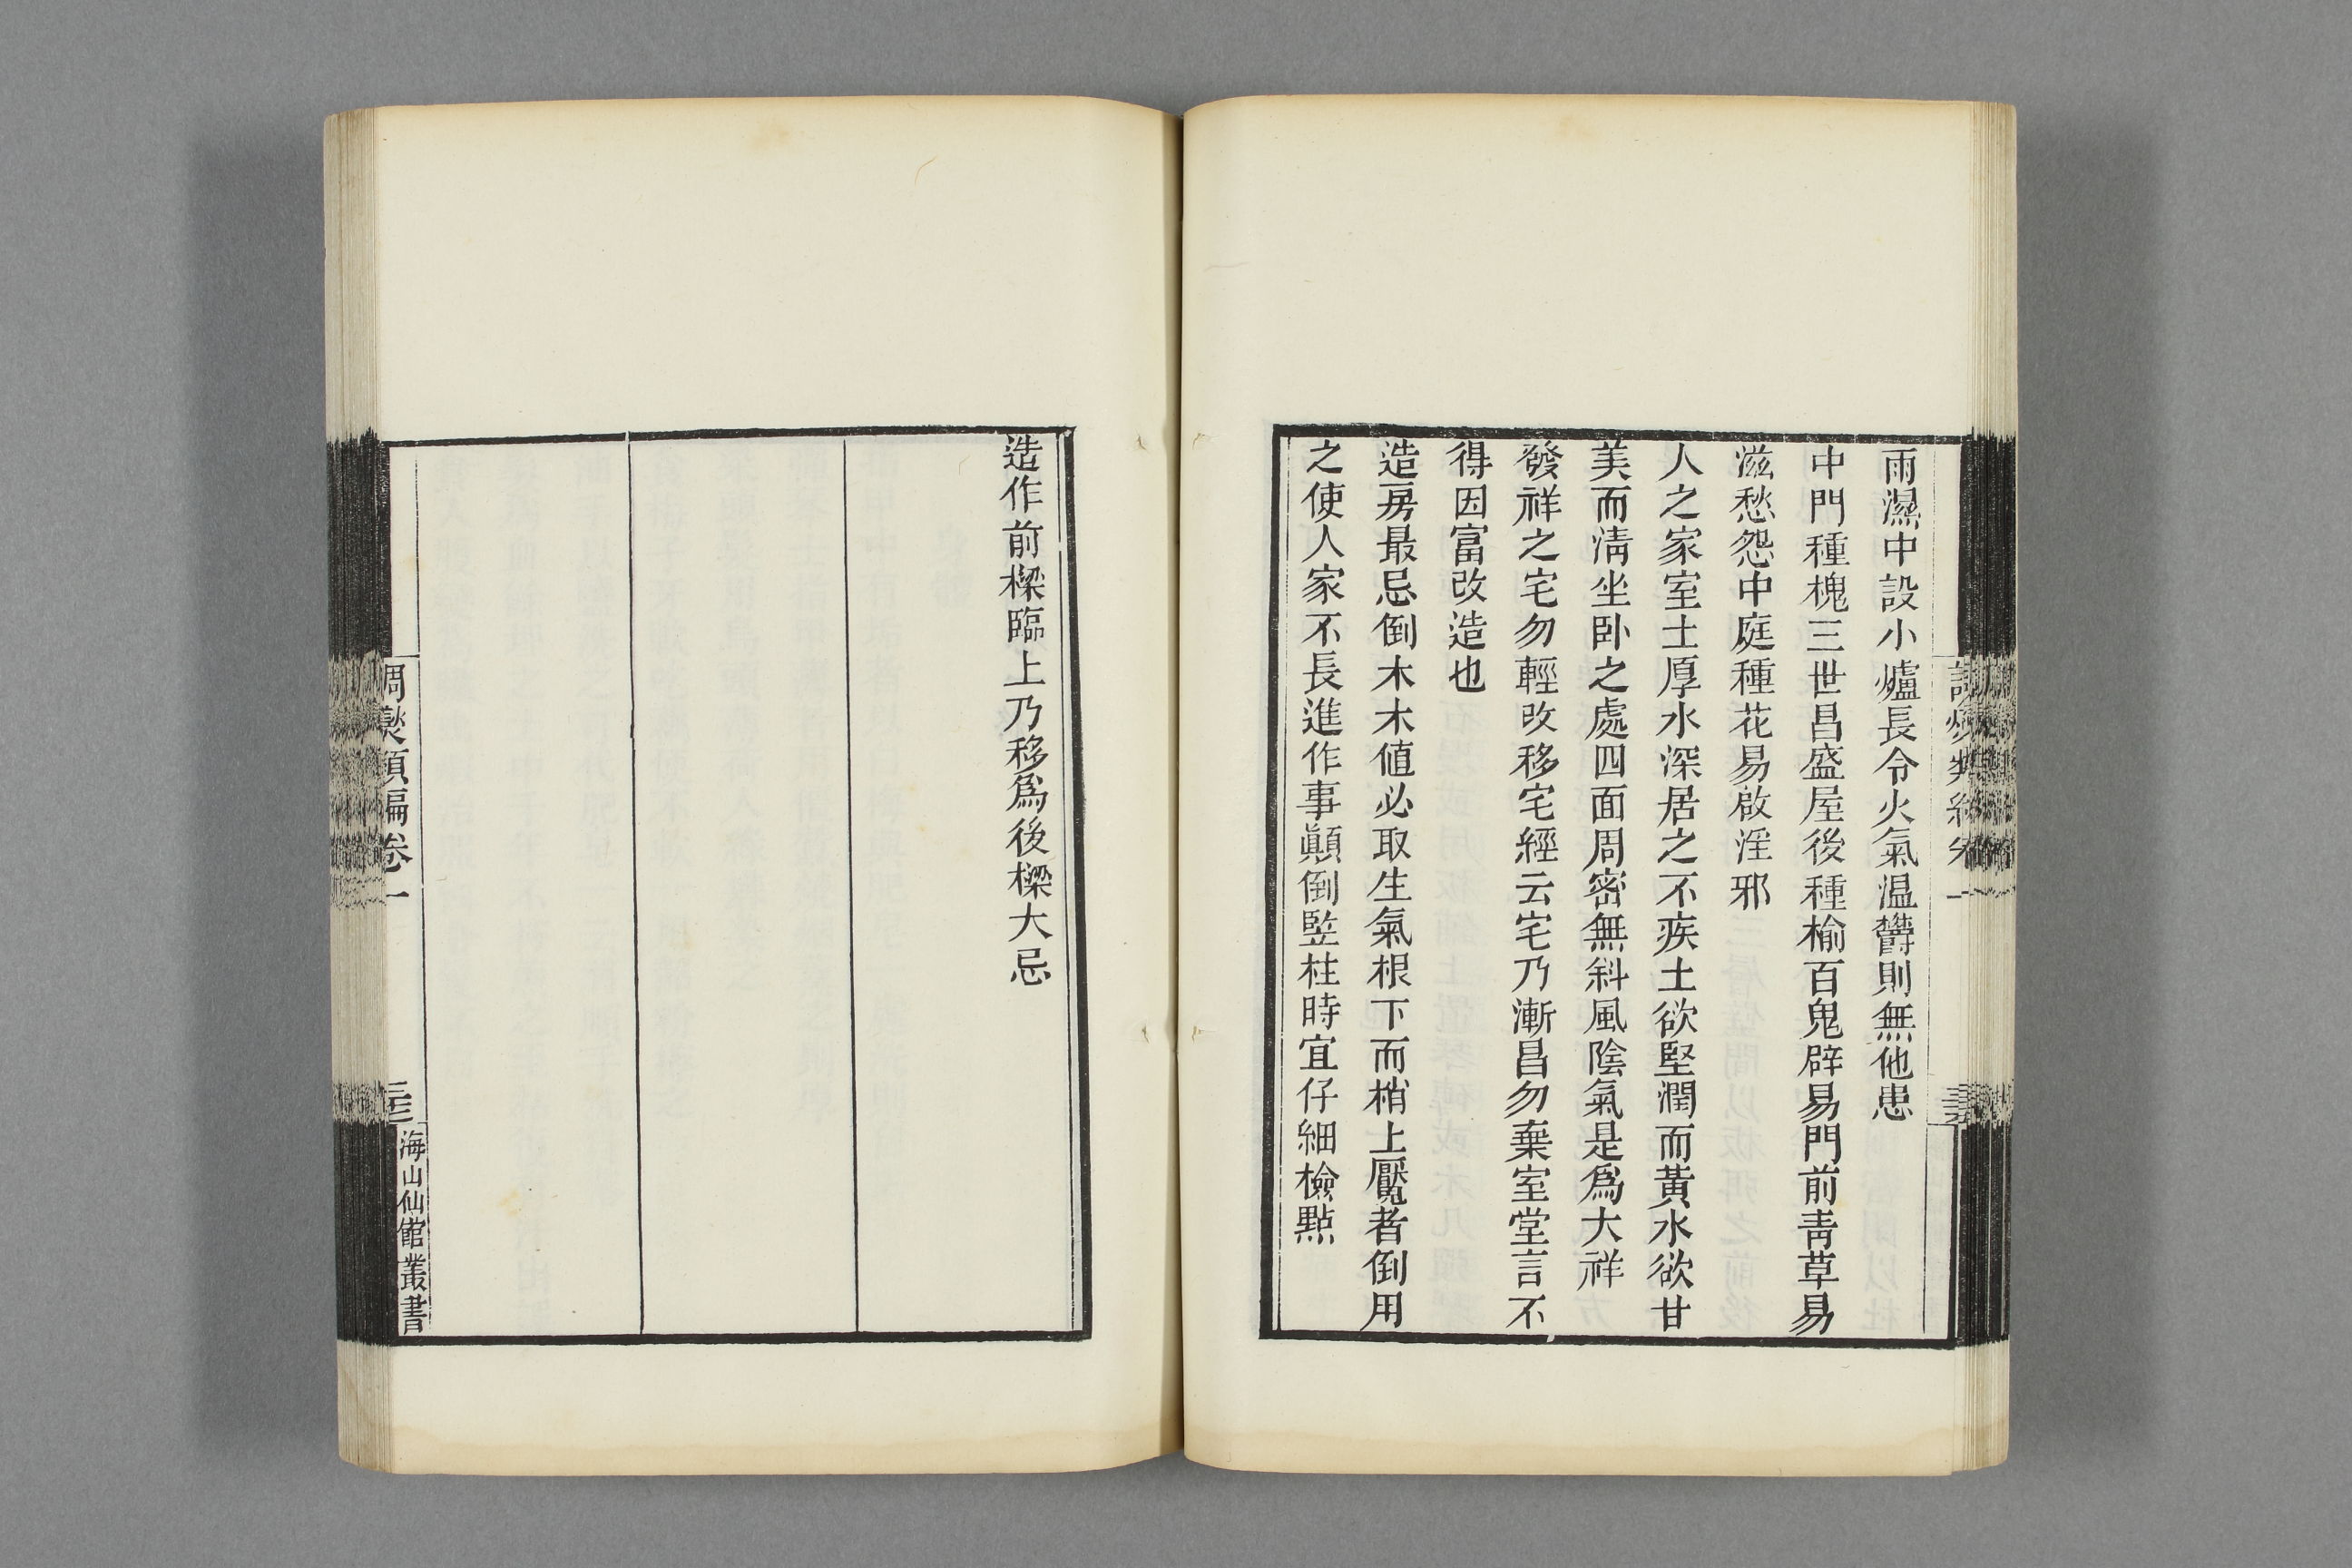 雨濕中設小爐長令火氣温鬱則無他患
中門種槐三世昌盛屋後種榆百鬼辟易門前青草易
滋愁怨中庭種花易啟淫邪
人之家室土厚水深居之不疾土欲堅潤而黃水欲甘
美而清坐卧之處四面周密無斜風陰氣是爲大祥
發祥之宅勿輕改移宅經云宅乃漸昌勿棄室堂言不
得因富改造也
造房最忌倒木木値必取生氣根下而梢上魘者倒用
之使人家不長進作事顚倒竪柱時宜仔細檢點
造作前樑臨上乃移爲後樑大忌
調燮類編卷一
海山仙館叢書